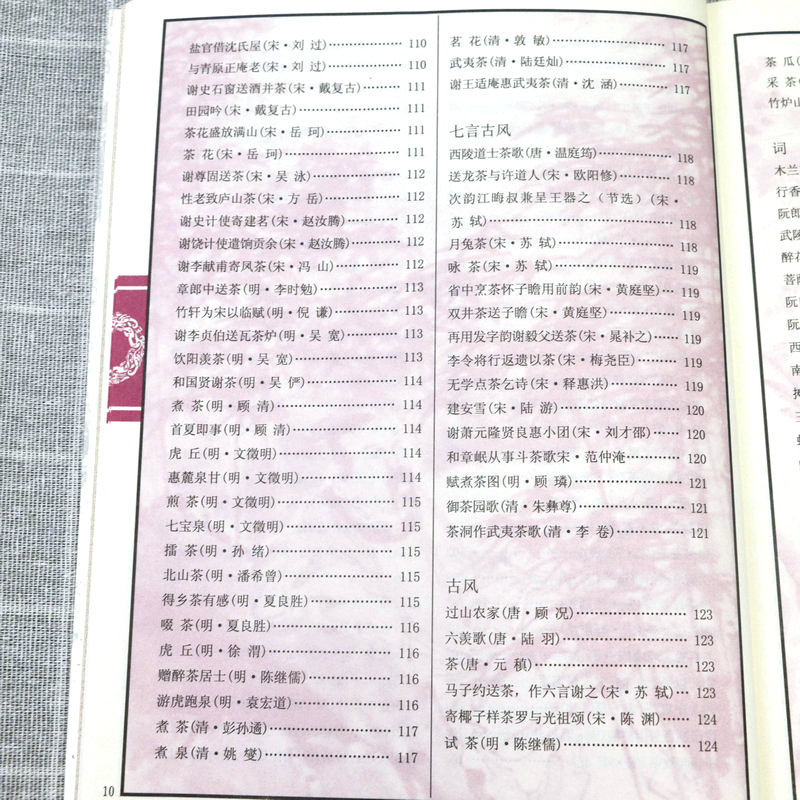 盐官借沈氏屋(宋·刘 过)………………110
与青原正庵老(宋·刘 过)………………110
谢史石窗送酒并茶(宋·戴复古)………111
田园吟(宋·戴复古)……………………111
茶花盛放满山(宋·岳 珂)………………111
茶 花(宋·岳 珂)………………………111
谢尊固送茶(宋·吴 泳)…………………112
性老致庐山茶(宋·方 岳)………………112
谢史计使寄建茗(宋·赵汝腾)…………112
谢饶计使遣饷贡余(宋·赵汝腾)………112
谢李献甫寄风茶(宋·冯 山)……………112
章郎中送茶(明·李时勉)………………113
竹轩为宋以临赋(明·倪 谦)……………113
谢李贞伯送瓦茶炉(明·吴 宽)…………113
饮阳羡茶(明·吴 宽)……………………113
和国贤谢茶(明·吴 俨)…………………114
煮 茶(明·顾 清)………………………114
首夏即事(明·顾 清)……………………114
虎 丘(明·文徵明)………………………114
惠麓泉甘(明·文徵明)…………………114
煎 茶(明·文徵明)………………………115
七宝泉(明·文徵明)……………………115
擂 茶(明·孙 绪)………………………115
北山茶(明·潘希曾)……………………115
得乡茶有感(明·夏良胜)………………115
啜 茶(明·夏良胜)………………………116
虎 丘(明·徐 渭)………………………116
赠醉茶居士(明·陈继儒)………………116
游虎跑泉(明·袁宏道)…………………116
煮 茶(清·彭孙遹)………………………117
煮 泉(清·姚 燮)………………………117
10
茗 花(清·敦 敏)………………………117
武夷茶(清·陆廷灿)……………………117
谢王适庵惠武夷茶(清·沈 涵)…………117
七言古风
西陵道士茶歌(唐·温庭筠)……………118
送龙茶与许道人(宋·欧阳修)…………118
次韵江晦叔兼呈王器之（节选）(宋·
苏 轼)……………………………………118
月兔茶(宋·苏 轼)………………………118
咏 茶(宋·苏 轼)………………………119
省中烹茶怀子瞻用前韵(宋·黄庭坚)…119
双井茶送子瞻(宋·黄庭坚)……………119
再用发字韵谢毅父送茶(宋·晁补之)……119
李令将行返遗以茶(宋·梅尧臣)………119
无学点茶乞诗(宋·释惠洪)……………119
建安雪(宋·陆 游)………………………120
谢萧元隆贤良惠小团(宋·刘才邵)……120
和章岷从事斗茶歌宋·范仲淹…………120
赋煮茶图(明·顾 璘)……………………121
御茶园歌(清·朱彝尊)…………………121
茶洞作武夷茶歌(清·李 卷)……………121
古风
过山农家(唐·顾 况)……………………123
六羡歌(唐·陆 羽)………………………123
茶(唐·元 稹)……………………………123
马子约送茶，作六言谢之(宋·苏 轼)…123
寄椰子样茶罗与光祖颂(宋·陈 渊)……124
试 茶(明·陈继儒)………………………124
茶 瓜(
采 茶(
竹炉山
词
木兰
行香
阮郎
武陵
醉花
菩
阮
阮
西
南